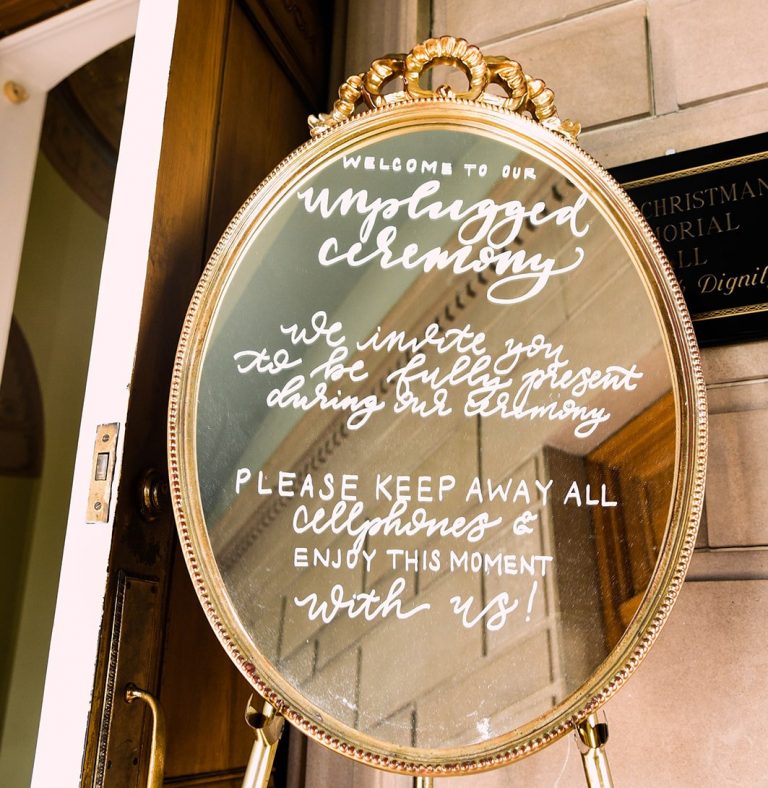 WELCOME TO OUR
unplugged
ceremony
we invite you
to be fully present
during our ceremony
PLEASE KEEP AWAY ALL
cellphones &
ENJOY THIS MOMENT
with us!
CHRISTMAN
Dignity